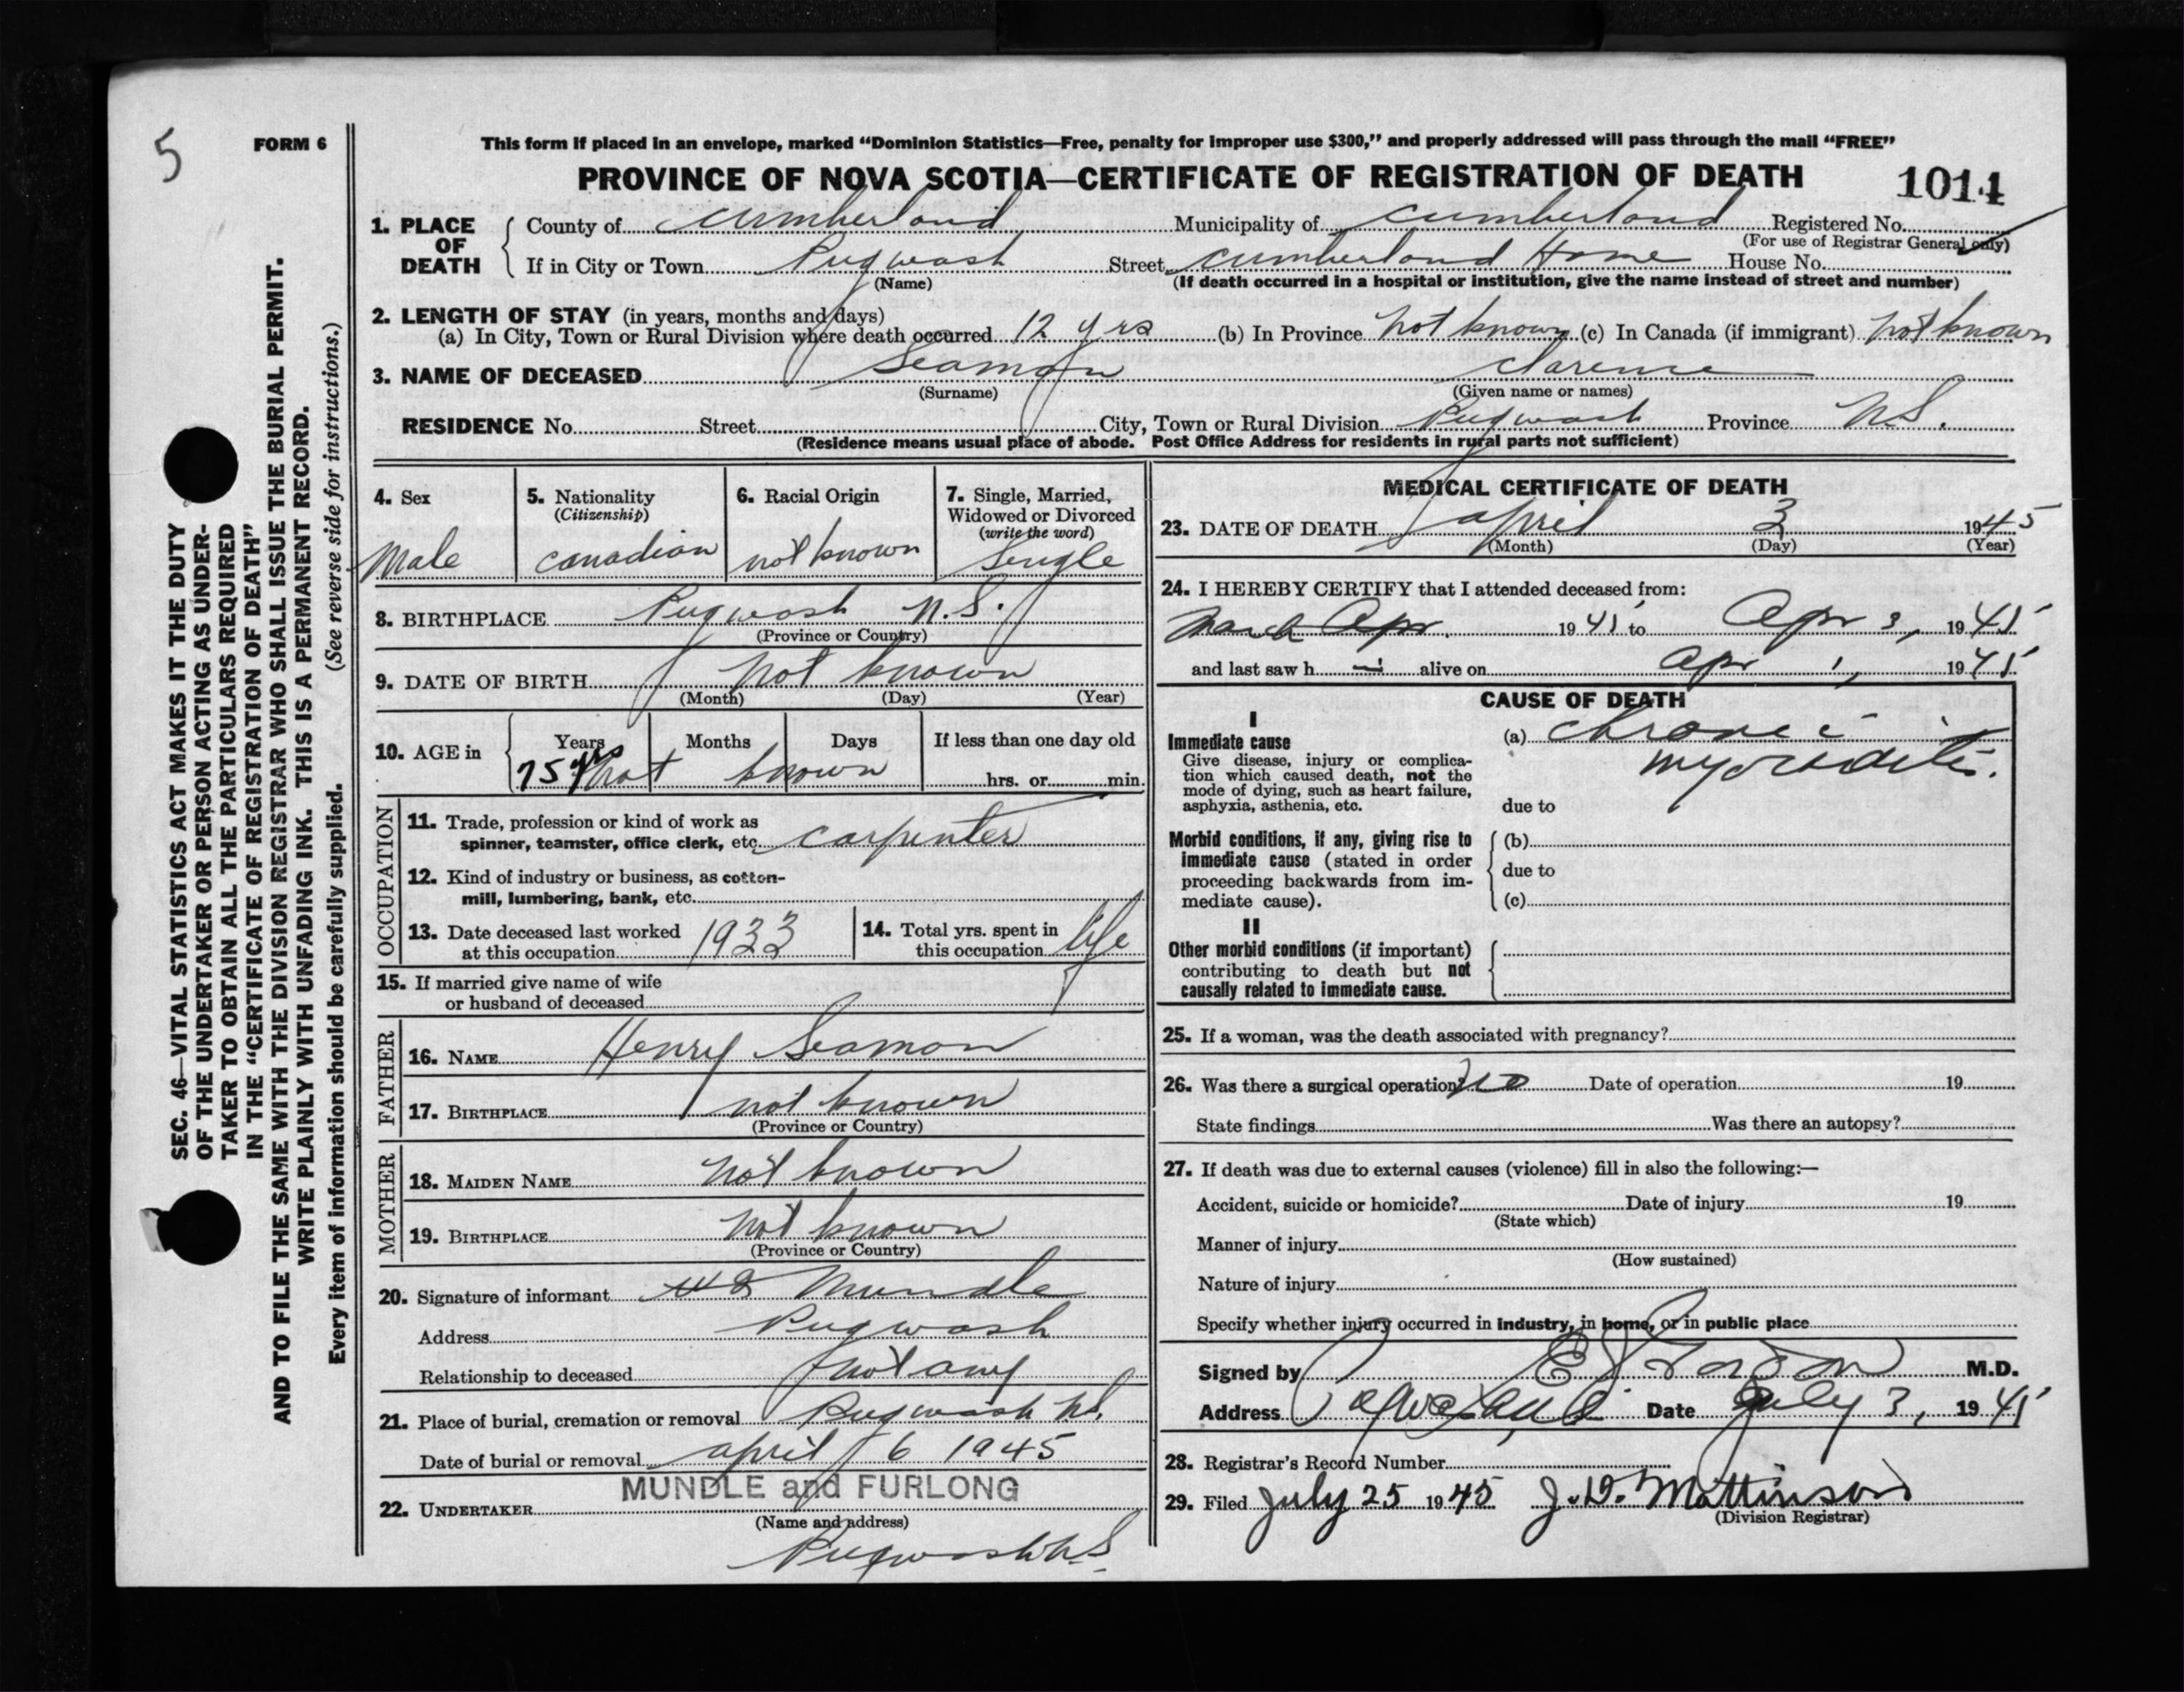 5
FORM 6
This form if placed in an envelope, marked “Dominion Statistics—Free, penalty for improper use $300,” and properly addressed will pass through the mail “FREE”
PROVINCE OF NOVA SCOTIA—CERTIFICATE OF REGISTRATION OF DEATH
1014
1. PLACE OF DEATH
County of Cumberland Municipality of Cumberland Registered No.
(For use of Registrar General only)
If in City or Town Pugwash Street Cumberland Home House No.
(Name) (If death occurred in a hospital or institution, give the name instead of street and number)
2. LENGTH OF STAY (in years, months and days)
(a) In City, Town or Rural Division where death occurred 12 yrs (b) In Province not known (c) In Canada (if immigrant) not known
3. NAME OF DECEASED Seamon Clarence
(Surname) (Given name or names)
RESIDENCE No. Street City, Town or Rural Division Pugwash Province N.S.
(Residence means usual place of abode. Post Office Address for residents in rural parts not sufficient)
4. Sex
Male
5. Nationality
(Citizenship)
Canadian
6. Racial Origin
not known
7. Single, Married,
Widowed or Divorced
(write the word)
Single
8. BIRTHPLACE Pugwash N.S.
(Province or Country)
9. DATE OF BIRTH not known
(Month) (Day) (Year)
10. AGE in
Years Months Days If less than one day old
75 yrs not known hrs. or min.
OCCUPATION
11. Trade, profession or kind of work as
spinner, teamster, office clerk, etc. carpenter
12. Kind of industry or business, as cotton-
mill, lumbering, bank, etc.
13. Date deceased last worked
at this occupation 1933
14. Total yrs. spent in
this occupation life
15. If married give name of wife
or husband of deceased
FATHER
16. NAME Henry Seamon
17. BIRTHPLACE not known
(Province or Country)
MOTHER
18. MAIDEN NAME not known
19. BIRTHPLACE not known
(Province or Country)
20. Signature of informant Mundle
Address Pugwash
Relationship to deceased not any
21. Place of burial, cremation or removal Pugwash N.S.
Date of burial or removal April 6 1945
MUNDLE and FURLONG
22. UNDERTAKER
(Name and address)
Pugwash N.S.
MEDICAL CERTIFICATE OF DEATH
23. DATE OF DEATH April 3 1945
(Month) (Day) (Year)
24. I HEREBY CERTIFY that I attended deceased from:
March Apr. 1945 to Apr 3, 1945
and last saw h alive on Apr 1, 1945
CAUSE OF DEATH
I
Immediate cause
Give disease, injury or complica-
tion which caused death, not the
mode of dying, such as heart failure,
asphyxia, asthenia, etc.
(a) chronic
myocarditis.
due to
Morbid conditions, if any, giving rise to
immediate cause (stated in order
proceeding backwards from im-
mediate cause).
(b)
due to
(c)
II
Other morbid conditions (if important)
contributing to death but not
causally related to immediate cause.
25. If a woman, was the death associated with pregnancy?
26. Was there a surgical operation? no Date of operation 19
State findings Was there an autopsy?
27. If death was due to external causes (violence) fill in also the following:—
Accident, suicide or homicide? Date of injury 19
(State which)
Manner of injury
(How sustained)
Nature of injury
Specify whether injury occurred in industry, in home, or in public place
Signed by M.D.
Address Date July 3, 1945
28. Registrar's Record Number
29. Filed July 25 1945 J. D. Mattinson
(Division Registrar)
SEC. 46—VITAL STATISTICS ACT MAKES IT THE DUTY
OF THE UNDERTAKER OR PERSON ACTING AS UNDER-
TAKER TO OBTAIN ALL THE PARTICULARS REQUIRED
IN THE “CERTIFICATE OF REGISTRATION OF DEATH”
AND TO FILE THE SAME WITH THE DIVISION REGISTRAR WHO SHALL ISSUE THE BURIAL PERMIT.
WRITE PLAINLY WITH UNFADING INK. THIS IS A PERMANENT RECORD.
Every item of information should be carefully supplied. (See reverse side for instructions.)